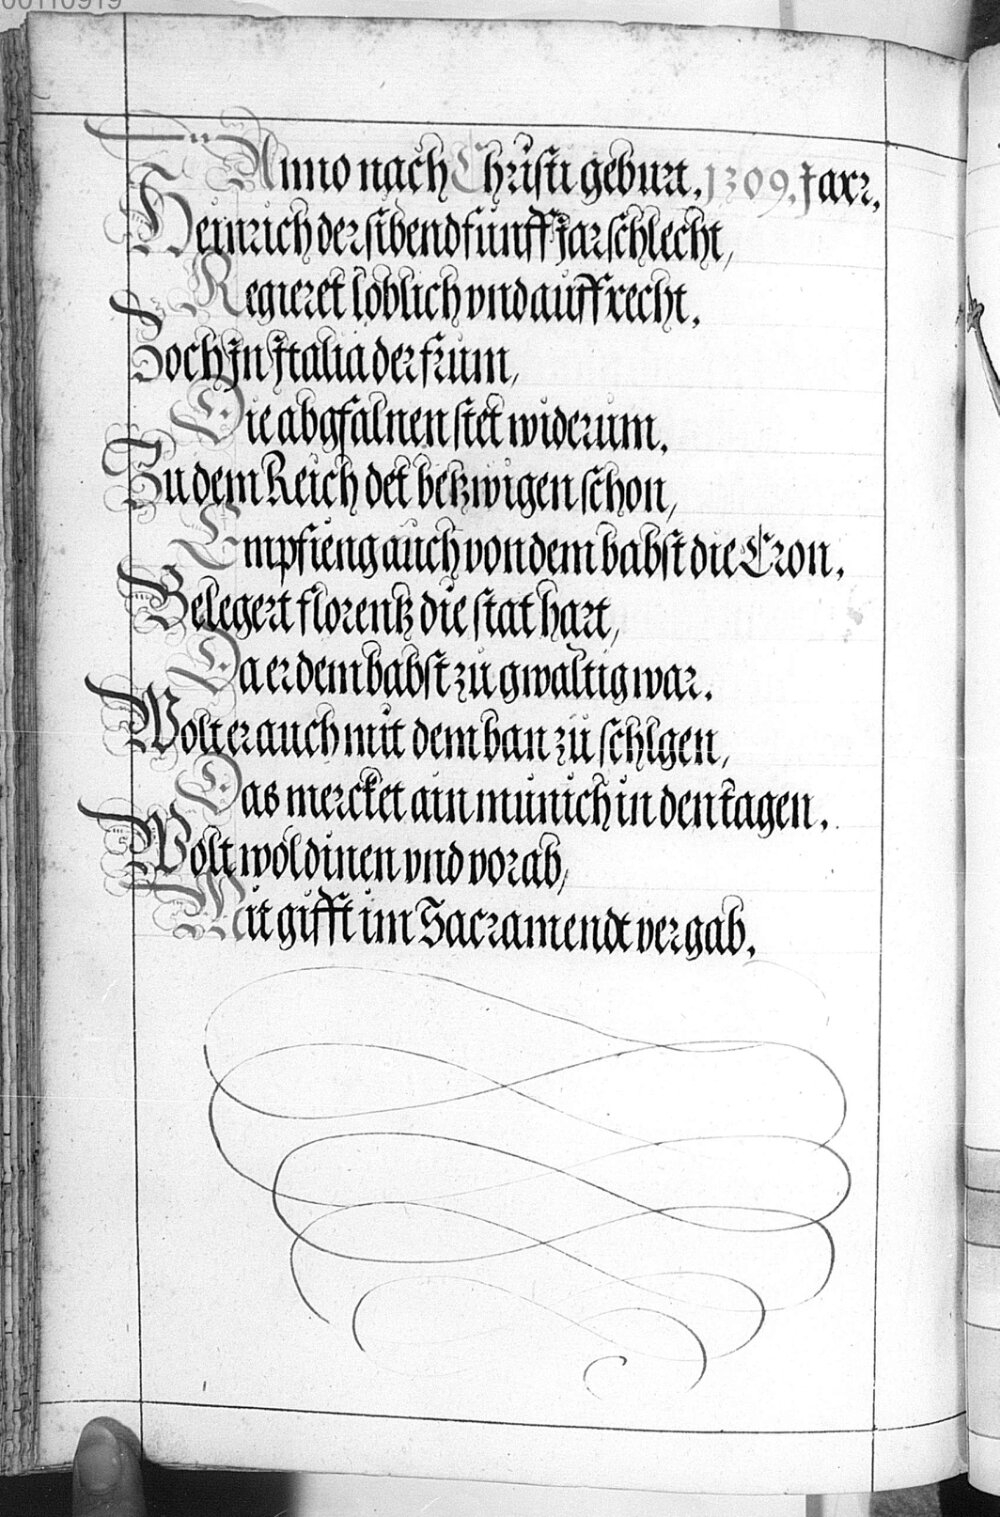 00110919
Anno nach Christi geburt. 1309. Jaxr.
Heinrich der sibend funff Jar schlecht,
Regieret löblich vnd auffrecht.
Zoch In Italia der frum,
Die abgfalnen stet widerum.
Zu dem Reich det betzwigen schon,
Empfieng auch von dem babst die Cron.
Belegert florentz die stat hart,
Da er dem babst zu gwaltig war.
Wolt er auch mit dem ban zu schlgen,
Das mercket ain munich in den tagen.
Wolt wol dinen vnd vorab,
Mit gifft im Sacramendt vergab.